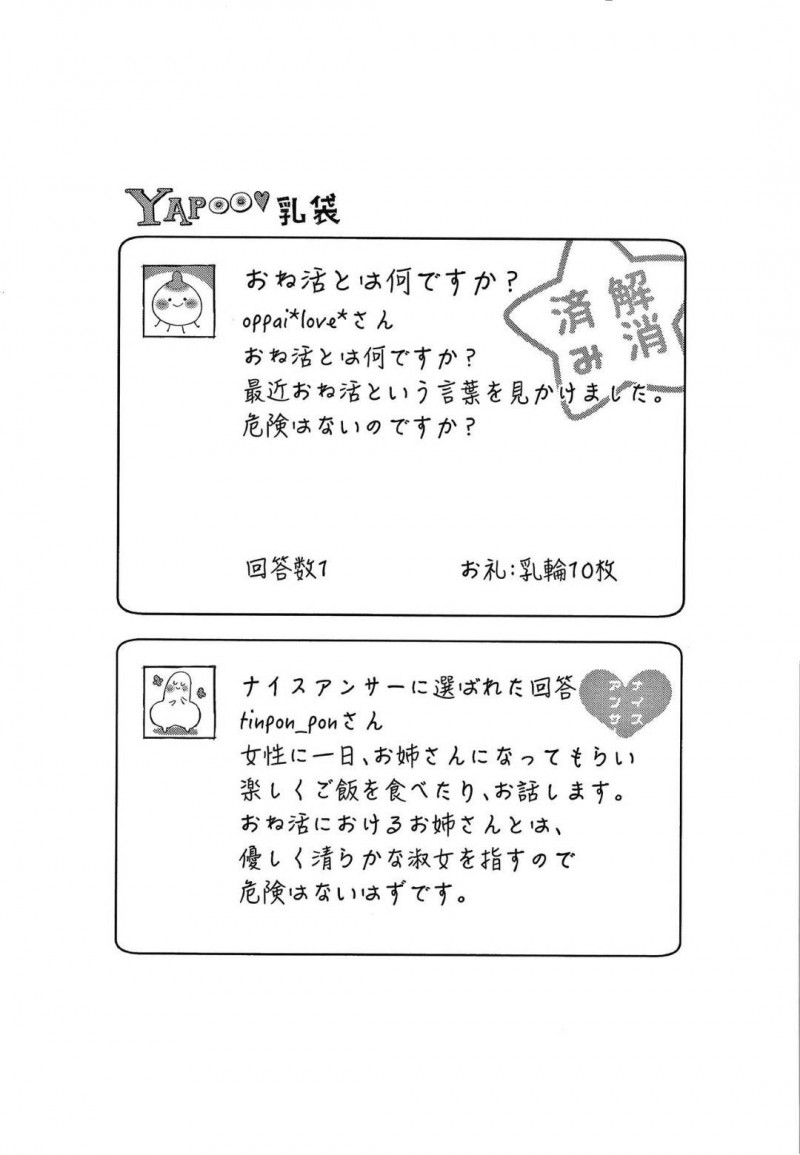 YAPOO♥乳袋
解消済み
おね活とは何ですか？
oppai*love*さん
おね活とは何ですか？
最近おね活という言葉を見かけました。
危険はないのですか？
回答数1
お礼：乳輪10枚
ナイスアンサーに選ばれた回答
ナイスアンサー
tinpon_ponさん
女性に一日、お姉さんになってもらい
楽しくご飯を食べたり、お話します。
おね活におけるお姉さんとは、
優しく清らかな淑女を指すので
危険はないはずです。